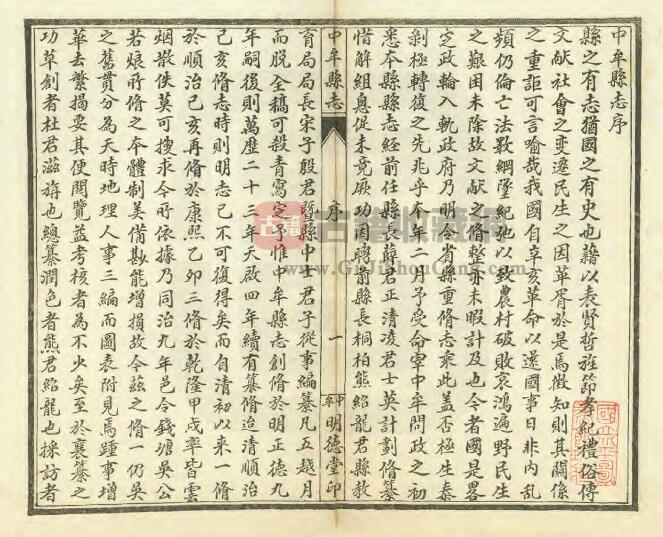 中牟縣志序
縣之有志猶國之有史也藉以表賢哲旌節孝紀禮俗傳
文献社會之变遷民生之因革胥於是焉徵知則其關係
之重詎可言喻哉我國自辛亥革命以還國事日非内乱
頻仍倫亡法斁綱墜紀弛以致農村破敗哀鴻遍野民生
之艱困未除故文献之脩整亦未暇計及也今者國是畧
定政輪入軌政府乃明令省縣重脩志乘此盖否極生泰
剝極轉復之先兆乎本年二月予受命宰中牟問政之初
悉本縣縣志経前任縣長薛君正清凌君士英計劃脩纂
惜解組息促未竟厥功因聘前縣長桐柏熊紹龍君縣教
中牟縣志
序
一
中牟明德堂印
育局局長宋子殷君暨縣中諸君子從事編纂凡五越月
而脱全稿可殺青寫定予惟中牟縣志創脩於明正德九
年嗣後則萬厯二十三年天啟四年續有纂脩迨清順治
己亥脩志時則明志已不可復得矣而自清初以来一脩
於順治己亥再脩於康熙乙卯三脩於乾隆甲戌率皆雲
烟散佚莫可搜求今所依據乃同治九年邑令錢塘吴公
若烺所脩之本體制美備尠能增損故今兹之脩一仍吴
之舊貫分為天時地理人事三編而圖表附見焉踵事增
華去繁揭要其便閱覽益考核者為不少矣至於襄纂之
功草創者杜君滋旃也總纂潤色者熊君紹龍也採訪者
古籍
古籍收藏網
www.GuJiShouCang.Com